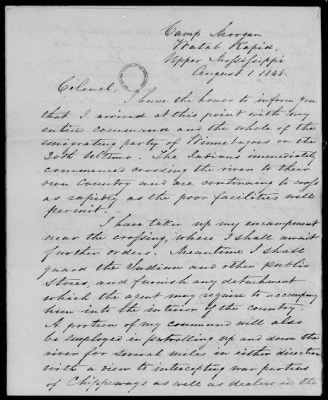 Camp Morgan
Watab Rapid,
Upper Mississippi
August 1 1848.
Colonel,
I have the honor to inform you
that I arrived at this point with my
entire command and the whole of the
emigrating party of Winnebagoes on the
30th Ultimo. The Indians immediately
commenced crossing the river to their
own Country and are continuing to cross
as rapidly as the poor facilities will
permit.
I have taken up my encampment
near the crossing, where I shall await
further orders. Meantime I shall
guard the Indian and other public
stores, and furnish any detachment
which the agent may require to accompany
him into the interior of the country.
A portion of my command will also
be employed in patrolling up and down the
river for several miles in either direction
with a view to intercepting war parties
of Chippeways as well as dealers in the